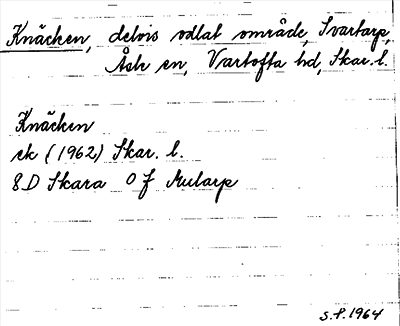 Knäcken, delvis odlat område, Svartarp,
Åsle sn, Vartofta hd, Skar. l.
Knäcken
ek (1962) Skar. l.
8D Skara 0 f Mularp
S.P. 1964